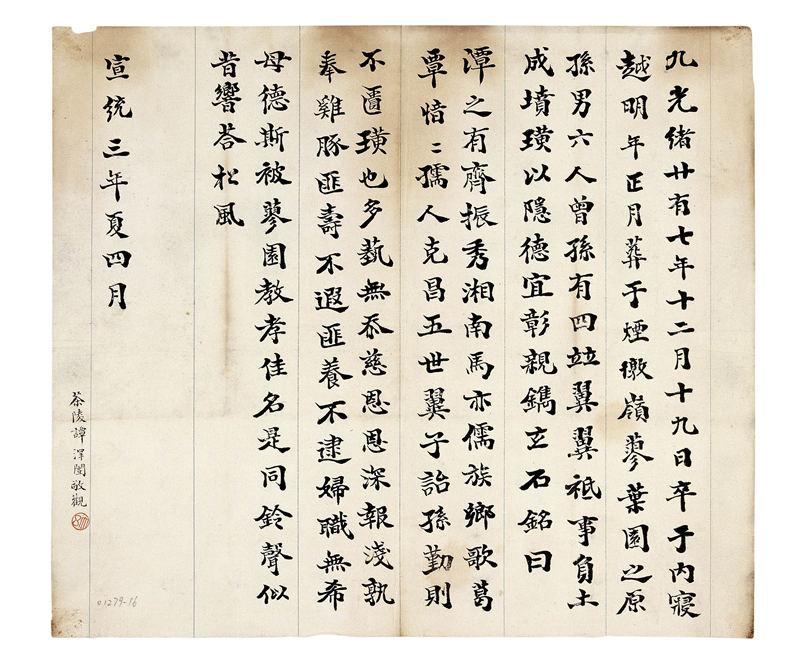 九光緒廿有七年十二月十九日卒于內寢
越明年正月葬于煙墩嶺蓼葉園之原
孫男六人曾孫有四竝翼翼祗事負土
成墳璜以隱德宜彰親鐫玄石銘曰
潭之有齊振秀湘南馬亦儒族鄉歌葛
覃愔〻孺人克昌五世翼子詒孫勤則
不匱璜也多蓺無忝慈恩恩深報淺孰
奉雞豚匪壽不遐匪養不逮婦職無希
母德斯被蓼園教孝佳名是同鈴聲似
昔響荅松風
宣統三年夏四月
茶陵譚澤闓敬觀
01279-16